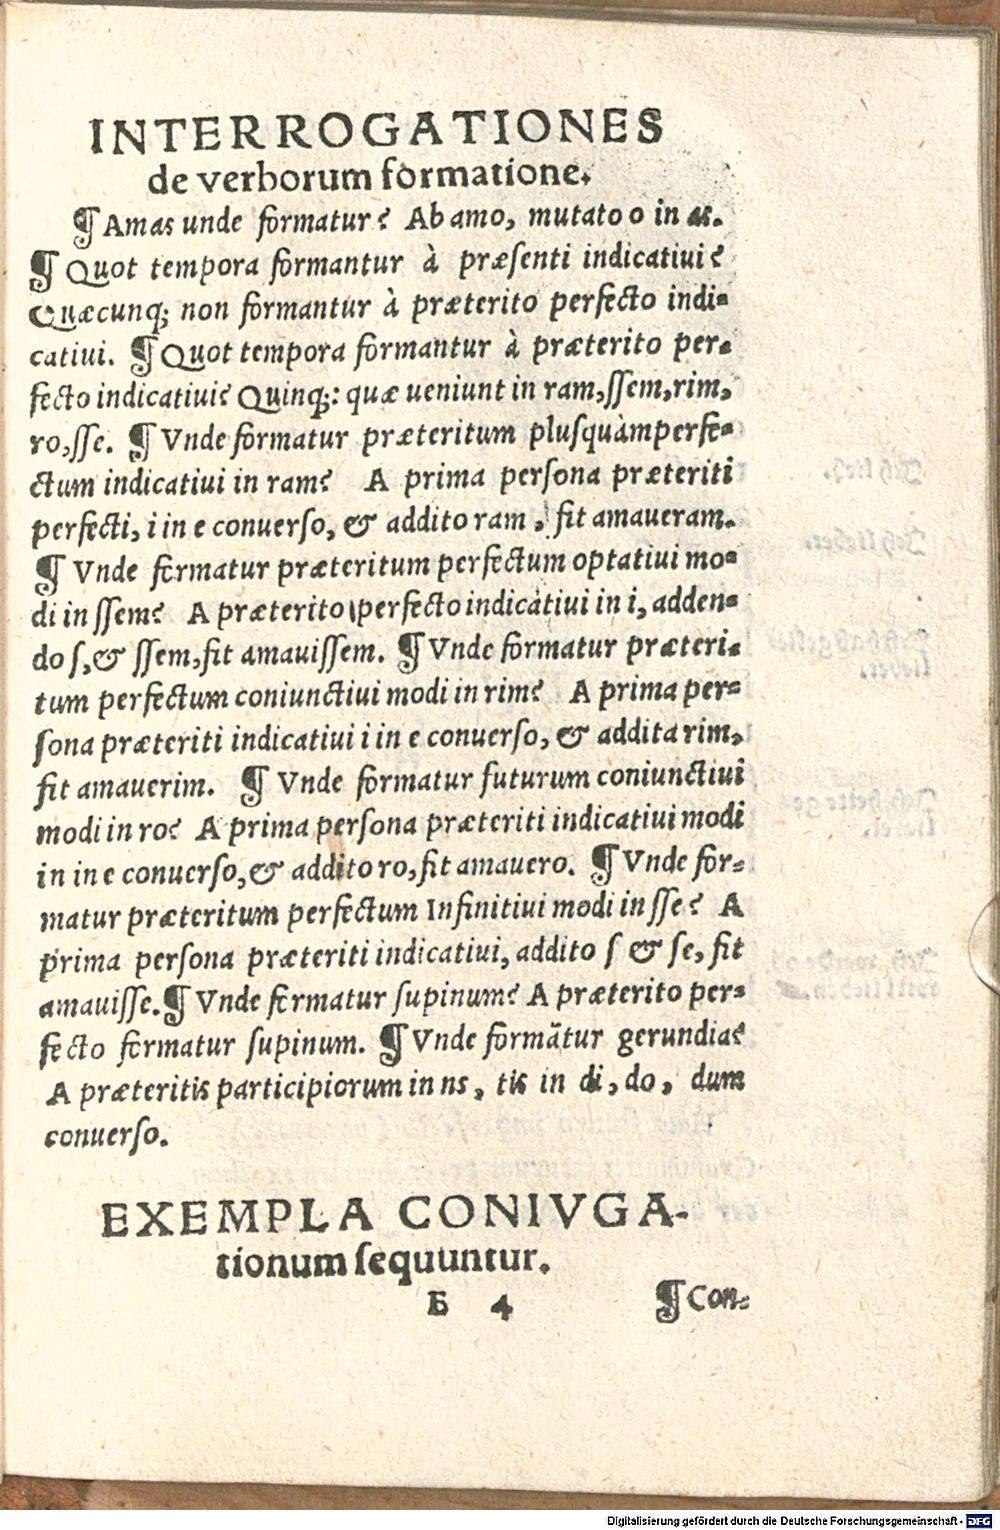 INTERROGATIONES
de verborum formatione.
¶ Amas unde formatur? Ab amo, mutato o in as.
¶ Quot tempora formantur à præsenti indicativi?
Quæcunq; non formantur à præterito perfecto indi-
catiui. ¶ Quot tempora formantur à præterito per-
fecto indicatiui? Quinq;: quæ ueniunt in ram,ſſem,rim,
ro,ſſe. ¶ Vnde formatur præteritum pluſquàmperfe-
ctum indicatiui in ram? A prima perſona præteriti
perfecti, i in e conuerſo, & addito ram, fit amaueram.
¶ Vnde formatur præteritum perfectum optatiui mo-
di in ſſem? A præterito perfecto indicatiui in i, adden-
do ſ,& ſſem,fit amauiſſem. ¶ Vnde formatur præteri-
tum perfectum coniunctiui modi in rim? A prima per-
ſona præteriti indicatiui i in e conuerſo, & addita rim,
fit amauerim. ¶ Vnde formatur futurum coniunctiui
modi in ro? A prima perſona præteriti indicatiui modi
in in e conuerſo,& addito ro,fit amauero. ¶ Vnde for-
matur præteritum perfectum Infinitiui modi in ſſe? A
prima perſona præteriti indicatiui, addito ſ & ſe, fit
amauiſſe. ¶ Vnde formatur ſupinum? A præterito per-
fecto formatur ſupinum. ¶ Vnde formãtur gerundia?
A præteritis participiorum in ns, tis in di, do, dum
conuerſo.
EXEMPLA CONIVGA-
tionum ſequuntur.
B 4 ¶ Con-
Digitalisierung gefördert durch die Deutsche Forschungsgemeinschaft - DFG